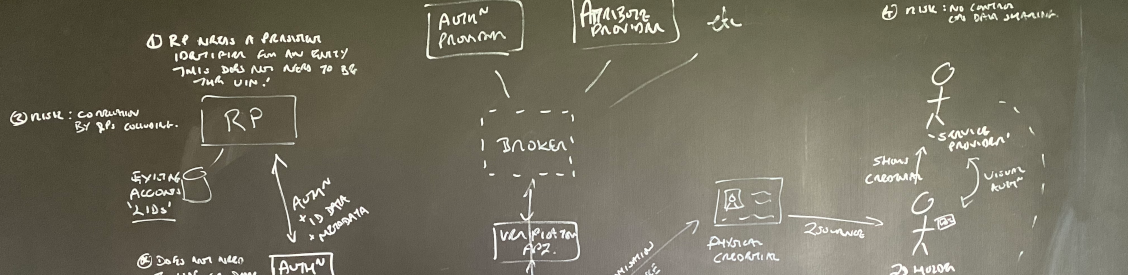 AUTHᴺ
PROVIDER
ATTRIBUTE
PROVIDER
etc
④ RISK: NO CONTROL
ON DATA SHARING.
① RP NEEDS A PERSISTENT
IDENTIFIER FOR AN ENTITY
THIS DOES NOT NEED TO BE
THEIR UIN.
③ RISK: CORRELATION
BY RPs COLLUDING.
RP
BROKER
'SERVICE
PROVIDER'
EXISTING
ACCOUNTS
'LIDs'
AUTHᴺ
+ ID DATA
+ METADATA
SHOWS
CREDENTIAL
VISUAL
AUTHᴺ
VERIFICATION
API.
PHYSICAL
CREDENTIAL
ISSUANCE
② DOES NOT NEED
AUTHᴺ
HOLDER